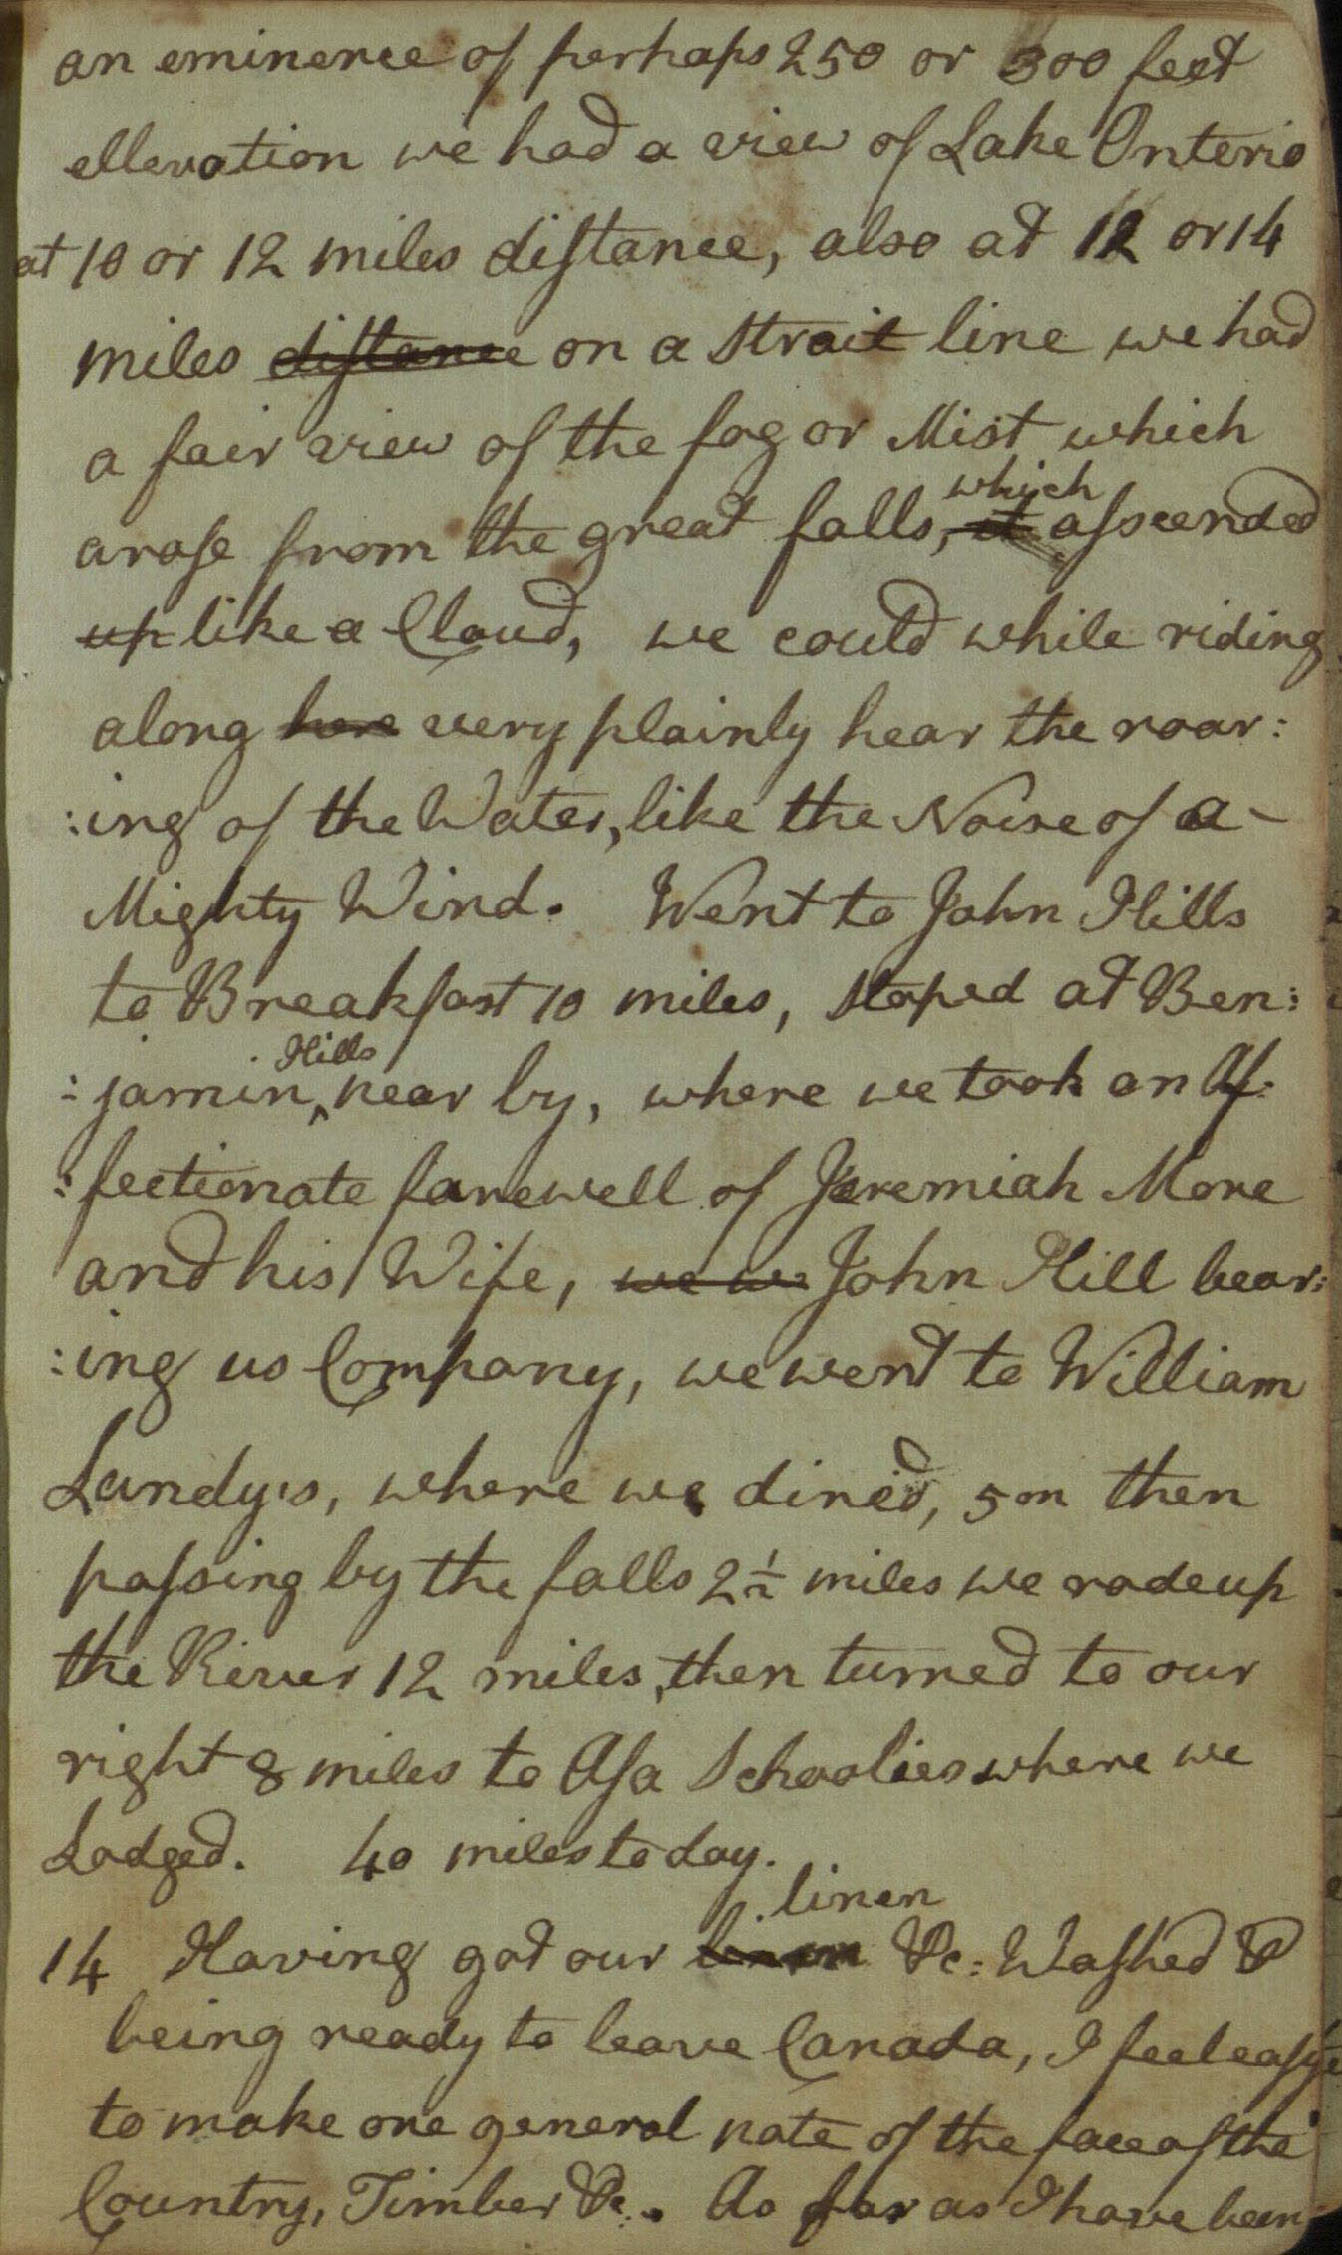 an eminence of perhaps 250 or 300 feet
ellevation we had a view of Lake Onterio
at 10 or 12 miles distance, also at 12 or 14
miles distance on a strait line we had
a fair view of the fog or Mist which
arose from the great falls, it which asscended
up like a Cloud, we could while riding
along here very plainly hear the roar:
:ing of the Water, like the Noise of a -
Mighty Wind. Went to John Hills
to Breakfast 10 miles, stoped at Ben:
:jamin Hills near by, where we took an Af:
:fectionate farewell of Jeremiah More
and his Wife, we w John Hill bear:
:ing us Company, we went to William
Lundy's, where we dined, 5 m then
passing by the falls 2½ miles we rode up
the River 12 miles, then turned to our
right 8 miles to Asa Schoolies where we
Lodged. 40 miles to day.
14 Having got our linen &c: Washed &
being ready to leave Canada, I feel easye
to make one general note of the face of the
Country, Timber &c. As far as I have been